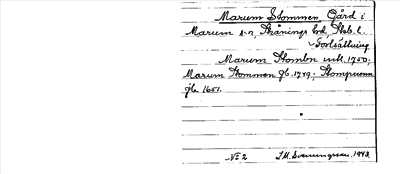 Marum Stommen, Gård i
Marum s:n, Skånings hd, Skb. l.
Fortsättning
Marum Stombn utk. 1750.
Marum Stommen gb. 1749. Stompnenn
jb. 1651.
VI 2 J.M. Svenungsson, 1943.